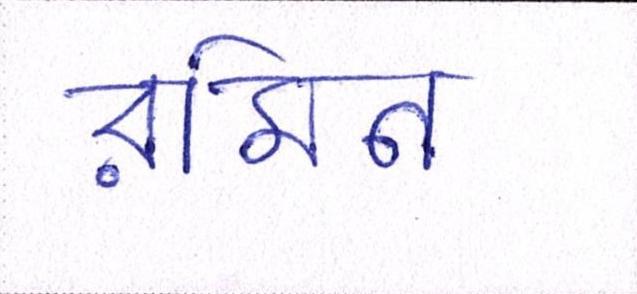 রমিন